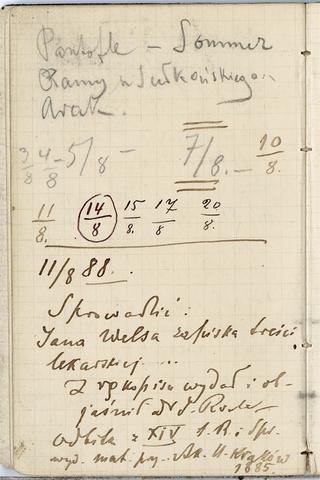 Pantofle – Sommer
Ramy u Sułkowskiego
Arak.
3/8 4/8 – 5/8 – 7/8. – 10/8.
11/8. 14/8 15/8. 17/8 20/8.
11/8 88.
Sprowadzić:
Jana Welsa zapiska treści
lekarskiej ...
Z rękopisu wydał i ob-
jaśnił Dr J.
odbitka z XIV t. R i Spr.
wyd. mat. prz. Ak. U. Kraków
1885.